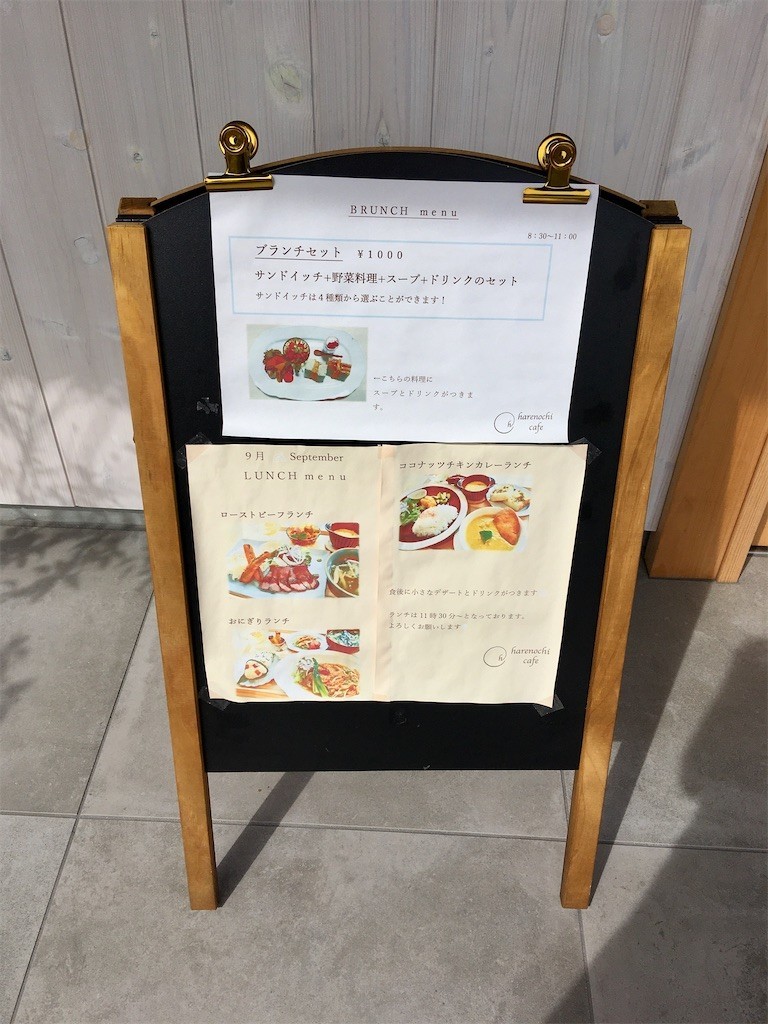 BRUNCH menu
8:30~11:00
ブランチセット ¥1000
サンドイッチ+野菜料理+スープ+ドリンクのセット
サンドイッチは4種類から選ぶことができます!
←こちらの料理に
スープとドリンクがつきま
す。
h harenochi
cafe
9月 September
LUNCH menu
ローストビーフランチ
おにぎりランチ
ココナッツチキンカレーランチ
食後に小さなデザートとドリンクがつきます
ランチは11時30分~となっております。
よろしくお願いします
h harenochi
cafe